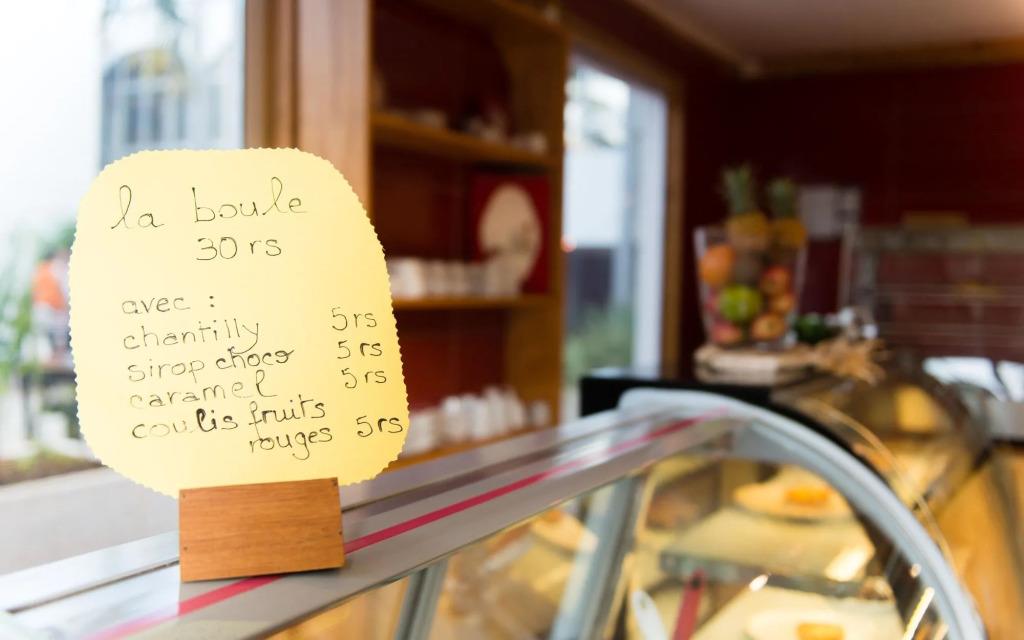 la boule
30 rs
avec :
chantilly 5 rs
sirop choco 5 rs
caramel 5 rs
coulis fruits
rouges 5 rs